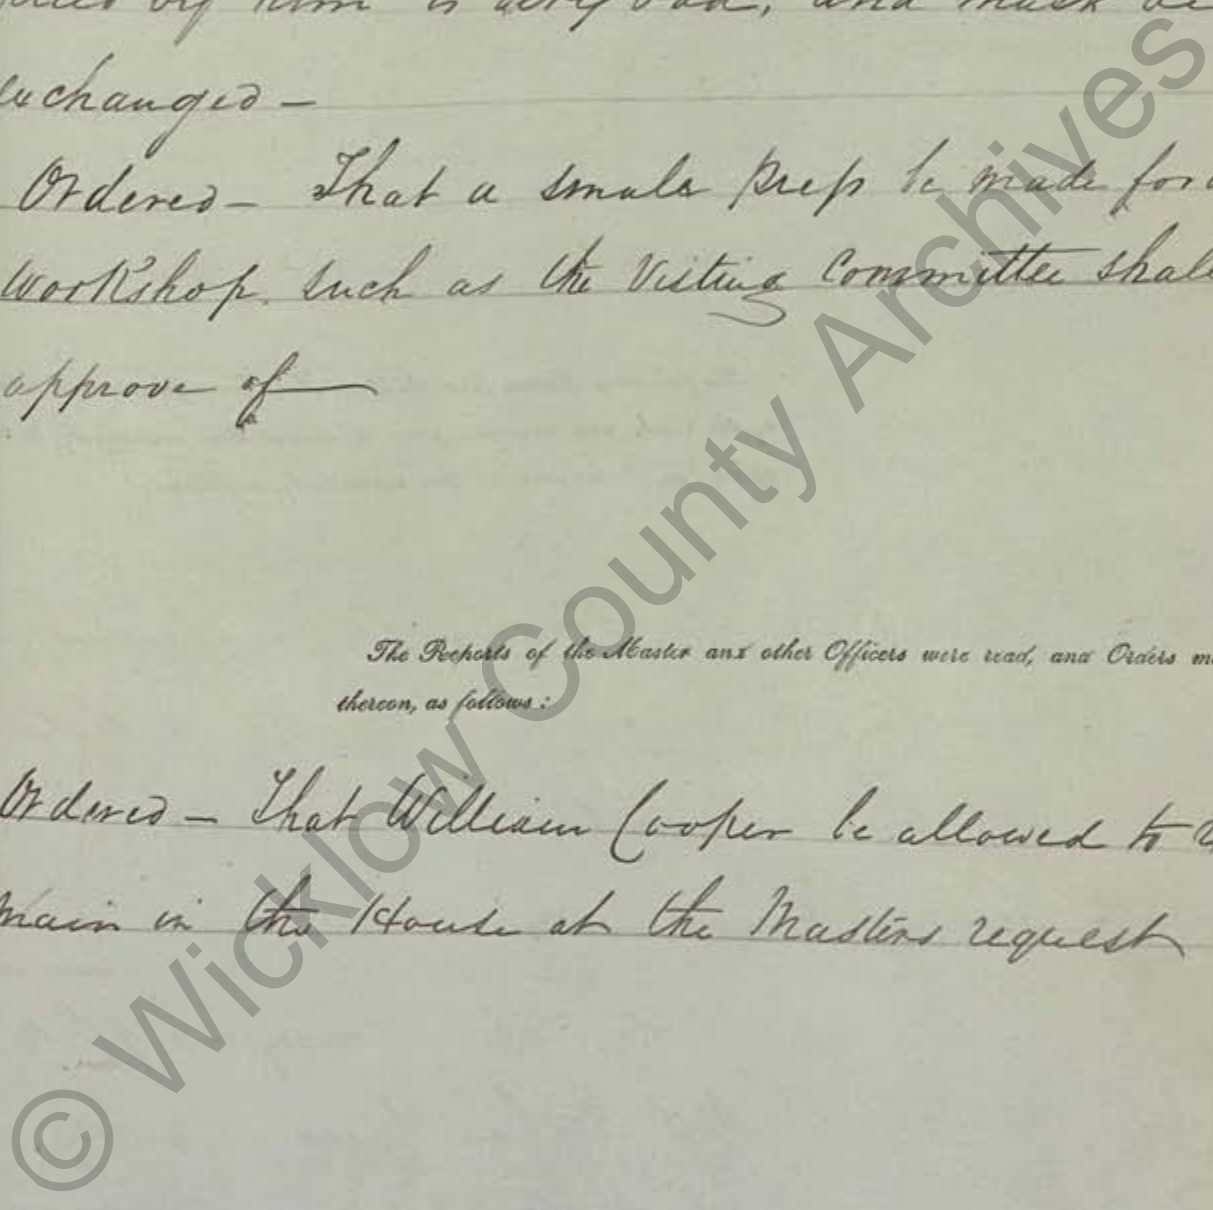 by him is very bad, and must be
exchanged —
Ordered — That a small press be made for
Workshop, such as the Visting Committee shall
approve of —
The Reports of the Master and other Officers were read, and Orders
thereon, as follows :
Ordered — That William Cooper be allowed to
main in the House at the Masters request
© Wicklow County Archives